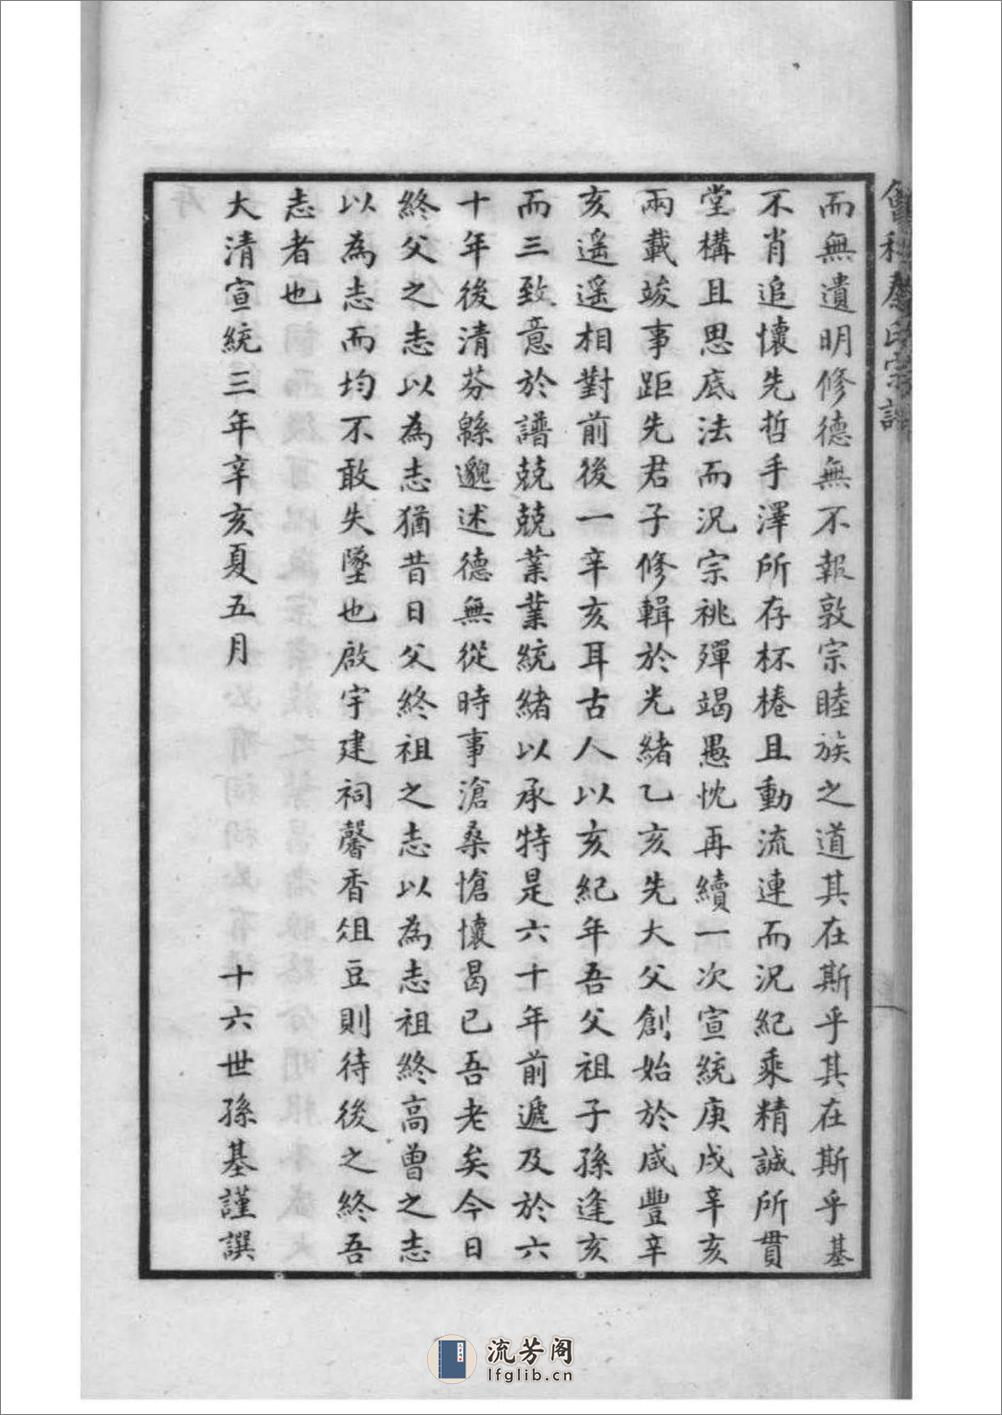 會稽 氏宗譜
而無遺明修德無不報敦宗睦族之道其在斯乎其在斯乎基
不肖追懷先哲手澤所存杯棬且動流連而況紀乘精誠所貫
堂構且思底法而況宗祧殫竭愚忱再續一次宣統庚戌辛亥
兩載竣事距先君子修輯於光緒乙亥先大父創始於咸豐辛
亥遥遥相對前後一辛亥耳古人以亥紀年吾父祖子孫逢亥
而三致意於譜兢兢業業統緒以承特是六十年前遞及於六
十年後清芬緜邈述德無從時事滄桑愴懷曷已吾老矣今日
終父之志以為志猶昔日父終祖之志以為志祖終高曾之志
以為志而均不敢失墜也啟宇建祠馨香俎豆則待後之終吾
志者也
大清宣統三年辛亥夏五月 十六世孫基謹譔
流芳阁
lfglib.cn